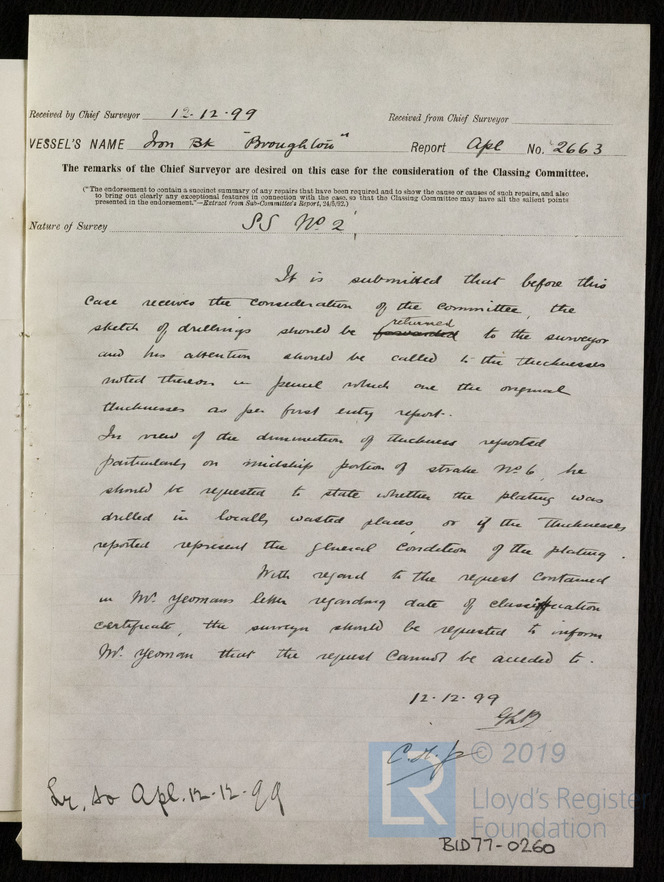 Received by Chief Surveyor 12.12.99 Received from Chief Surveyor
VESSEL'S NAME Iron Bk "Broughton" Report Apl No. 2663
The remarks of the Chief Surveyor are desired on this case for the consideration of the Classing Committee.
("The endorsement to contain a succinct summary of any repairs that have been required and to show the cause or causes of such repairs, and also
to bring out clearly any exceptional features in connection with the case, so that the Classing Committee may have all the salient points
presented in the endorsement."—Extract from Sub-Committee's Report, 24/5/92.)
Nature of Survey SS No 2
It is submitted that before this
case receives the consideration of the committee, the
sketch of drillings should be forwarded returned to the surveyor
and his attention should be called to the thicknesses
noted thereon in pencil which are the original
thicknesses as per first entry report.
In view of the diminution of thickness reported
particularly on midship portion of strake No 6, he
should be requested to state whether the plating was
drilled in locally wasted places, or if the thicknesses
reported represent the general condition of the plating.
With regard to the request contained
in Mr. Yeomans letter regarding date of classification
certificate, the surveyor should be requested to inform
Mr. Yeoman that the request cannot be acceded to.
12.12.99
Lr. to Apl. 12.12.99
LR
© 2019
Lloyd's Register
Foundation
BID77-0260